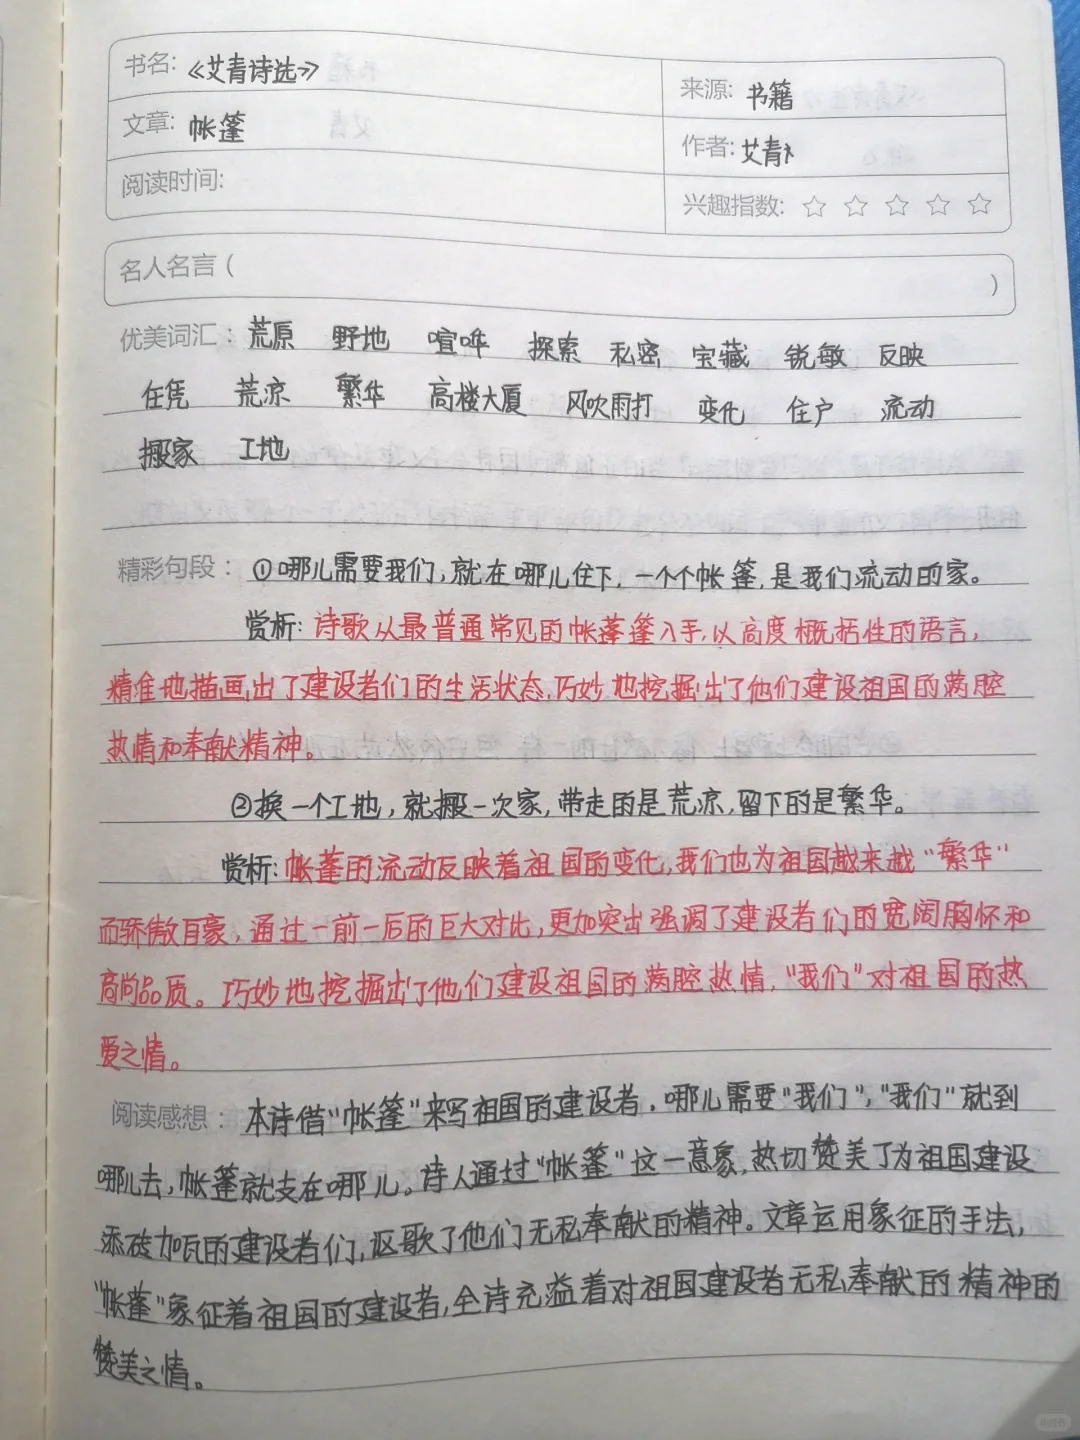 书名: 《艾青诗选》
来源: 书籍
文章: 帐篷
作者: 艾青
阅读时间:
兴趣指数: ☆ ☆ ☆ ☆ ☆
名人名言 ( )
优美词汇: 荒原 野地 喧哗 探索 私密 宝藏 锐敏 反映
任凭 荒凉 繁华 高楼大厦 风吹雨打 变化 住户 流动
搬家 工地
精彩句段: ①哪儿需要我们,就在哪儿住下,一个个帐篷,是我们流动的家。
赏析: 诗歌从最普通常见的帐篷篷入手,以高度概括性的语言,
精准地描画出了建设者们的生活状态,巧妙地挖掘出了他们建设祖国的满腔
热情和奉献精神。
②换一个工地,就搬一次家,带走的是荒凉,留下的是繁华。
赏析: 帐篷的流动反映着祖国的变化,我们也为祖国越来越“繁华”
而骄傲自豪,通过一前一后的巨大对比,更加突出强调了建设者们的宽阔胸怀和
高尚品质。巧妙地挖掘出了他们建设祖国的满腔热情,“我们”对祖国的热
爱之情。
阅读感想: 本诗借“帐篷”来写祖国的建设者,哪儿需要“我们”,“我们”就到
哪儿去,帐篷就支在哪儿。诗人通过“帐篷”这一意象,热切赞美了为祖国建设
添砖加瓦的建设者们,讴歌了他们无私奉献的精神。文章运用象征的手法,
“帐篷”象征着祖国的建设者,全诗充溢着对祖国建设者无私奉献的精神的
赞美之情。